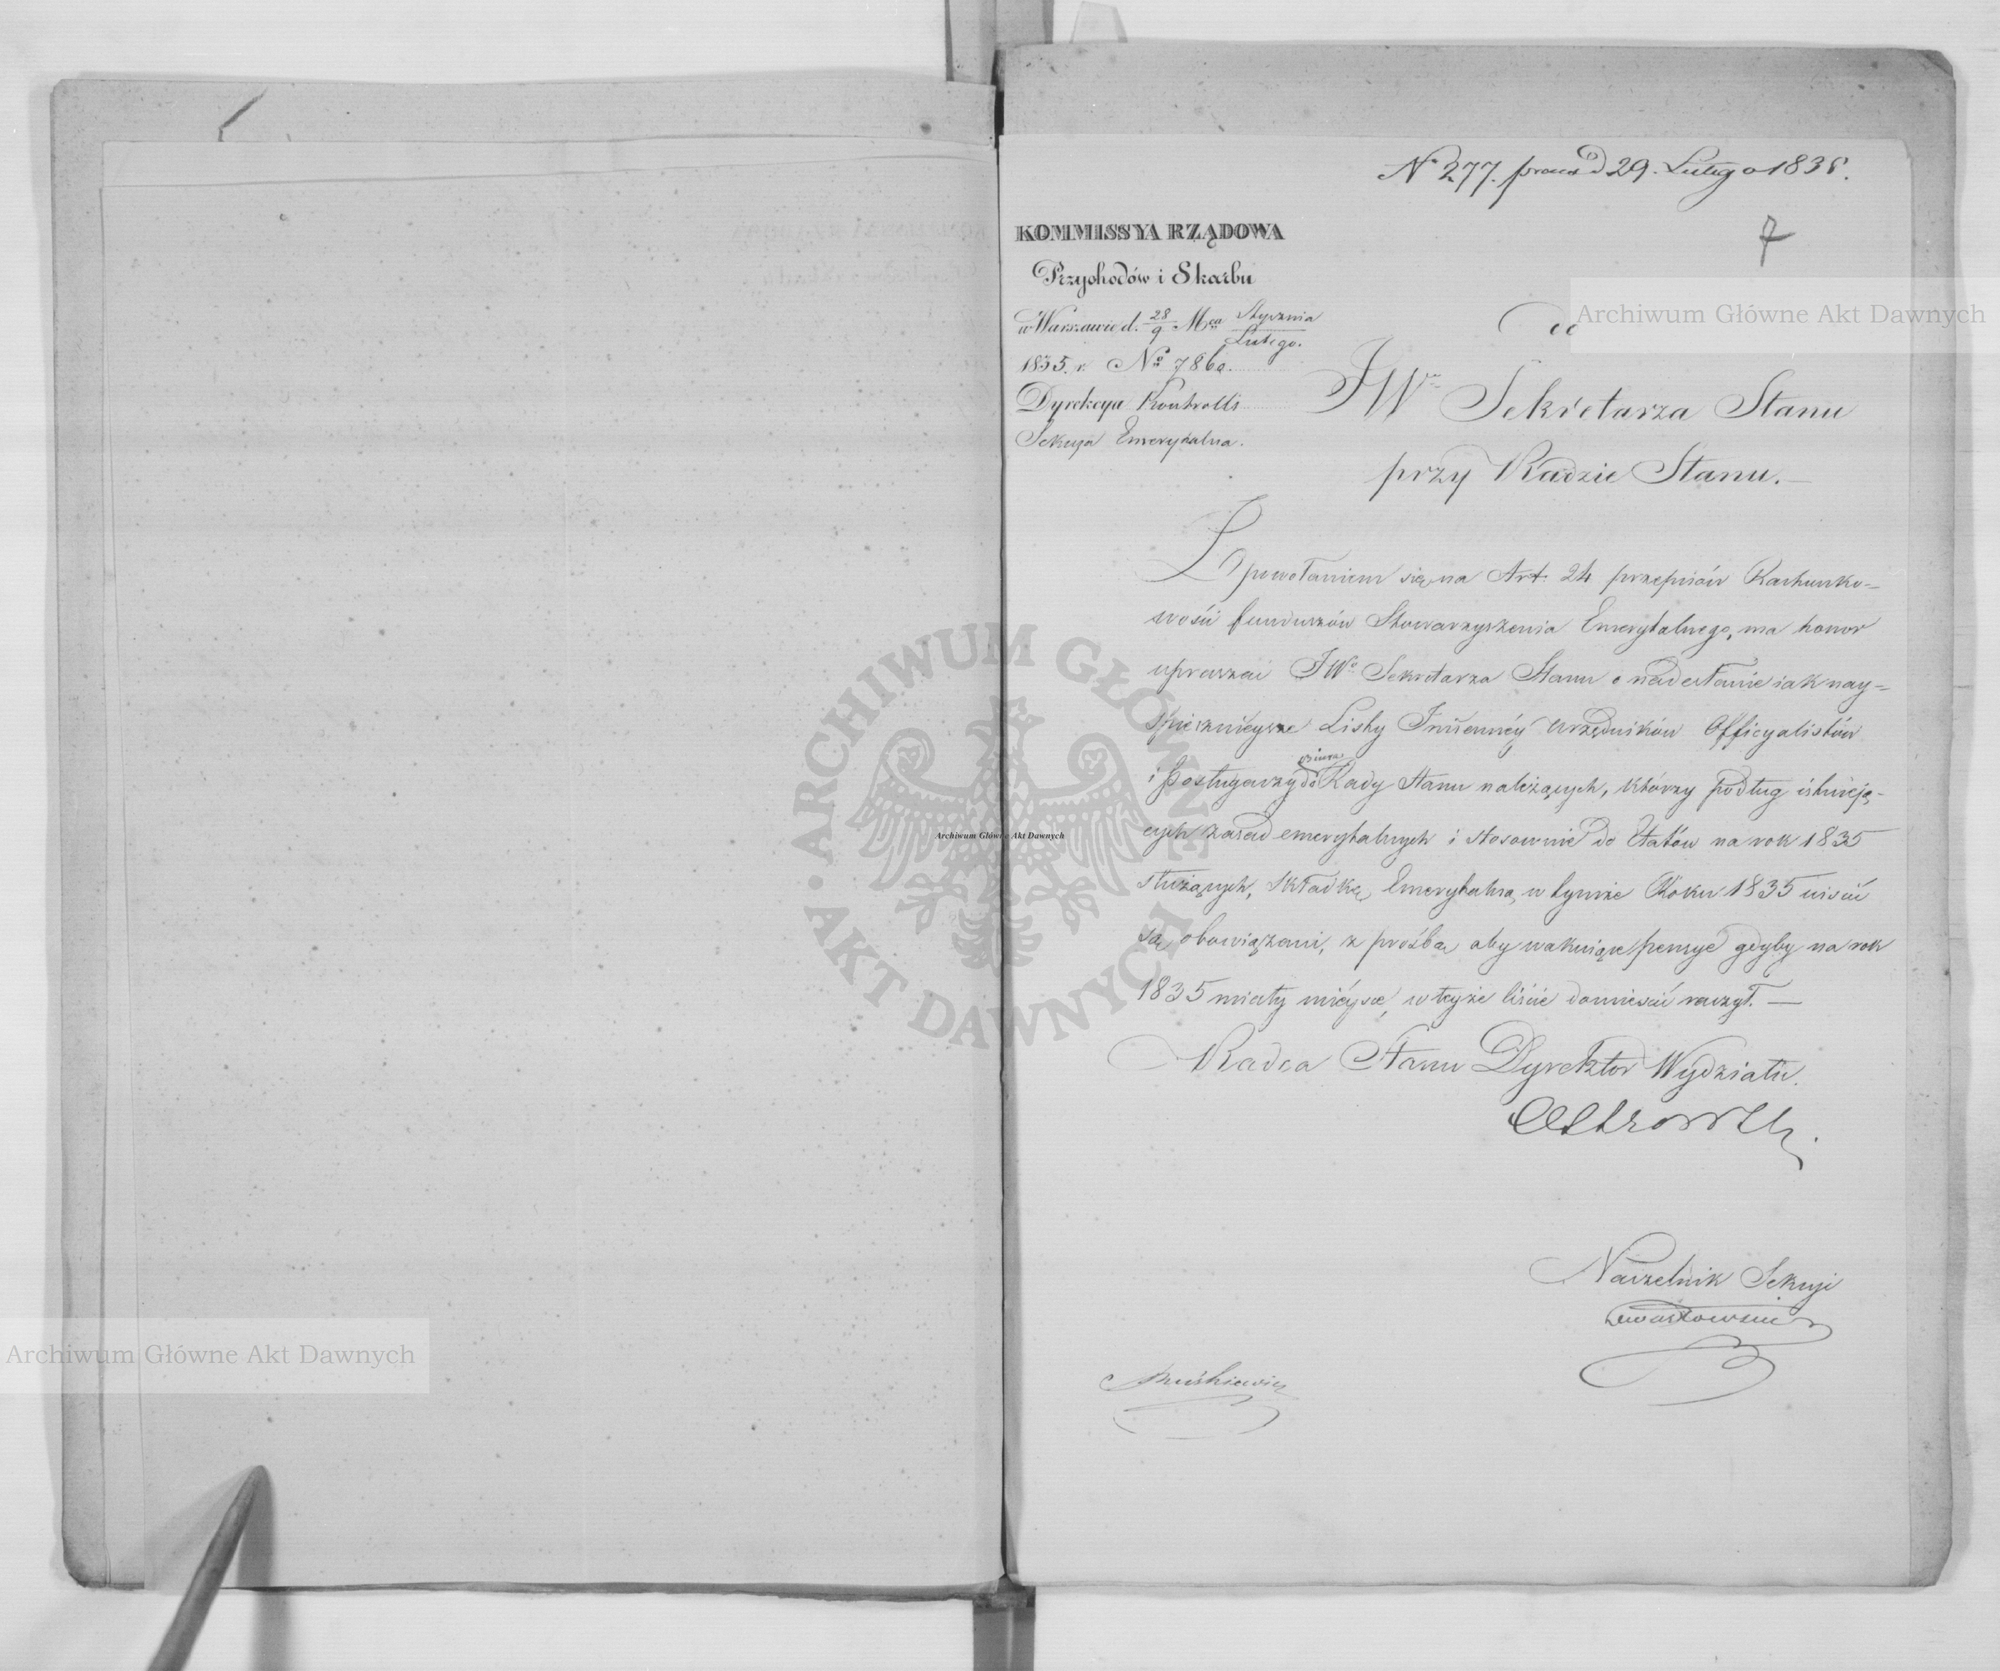 Nº 277. praes. D 29. Lutego 1835.
7
KOMMISSYA RZĄDOWA
Przychodów i Skarbu
w Warszawie d. 28/9 Mca Stycznia/Lutego.
1835. r. Nº 7860.
Dyrekcya Kontrolli
Sekcya Emerytalna.
Do
JWo Sekretarza Stanu
przy Radzie Stanu.
Z powołaniem się na Art. 24 przepisów Rachunko-
wości funduszów Stowarzyszenia Emerytalnego, ma honor
upraszać JWo Sekretarza Stanu o nadesłanie iak nay-
śpiesznieysze Listy Imiennéy Urzędników Officyalistów
i Posługaczy do biura Rady Stanu należących, którzy podług istnieją-
cych zasad emerytalnych i stosownie do Etatów na rok 1835
służących, składkę Emerytalną w tymże Roku 1835 uiścić
są obowiązani, z prośbą aby wakuiące pensye gdyby na rok
1835 miały mieysce, w teyże liście domieścić raczył. —
Radca Stanu Dyrektor Wydziału.
Naczelnik Sekcyi
Archiwum Główne Akt Dawnych
Archiwum Główne Akt Dawnych
Archiwum Główne Akt Dawnych
ARCHIWUM GŁÓWNE
AKT DAWNYCH